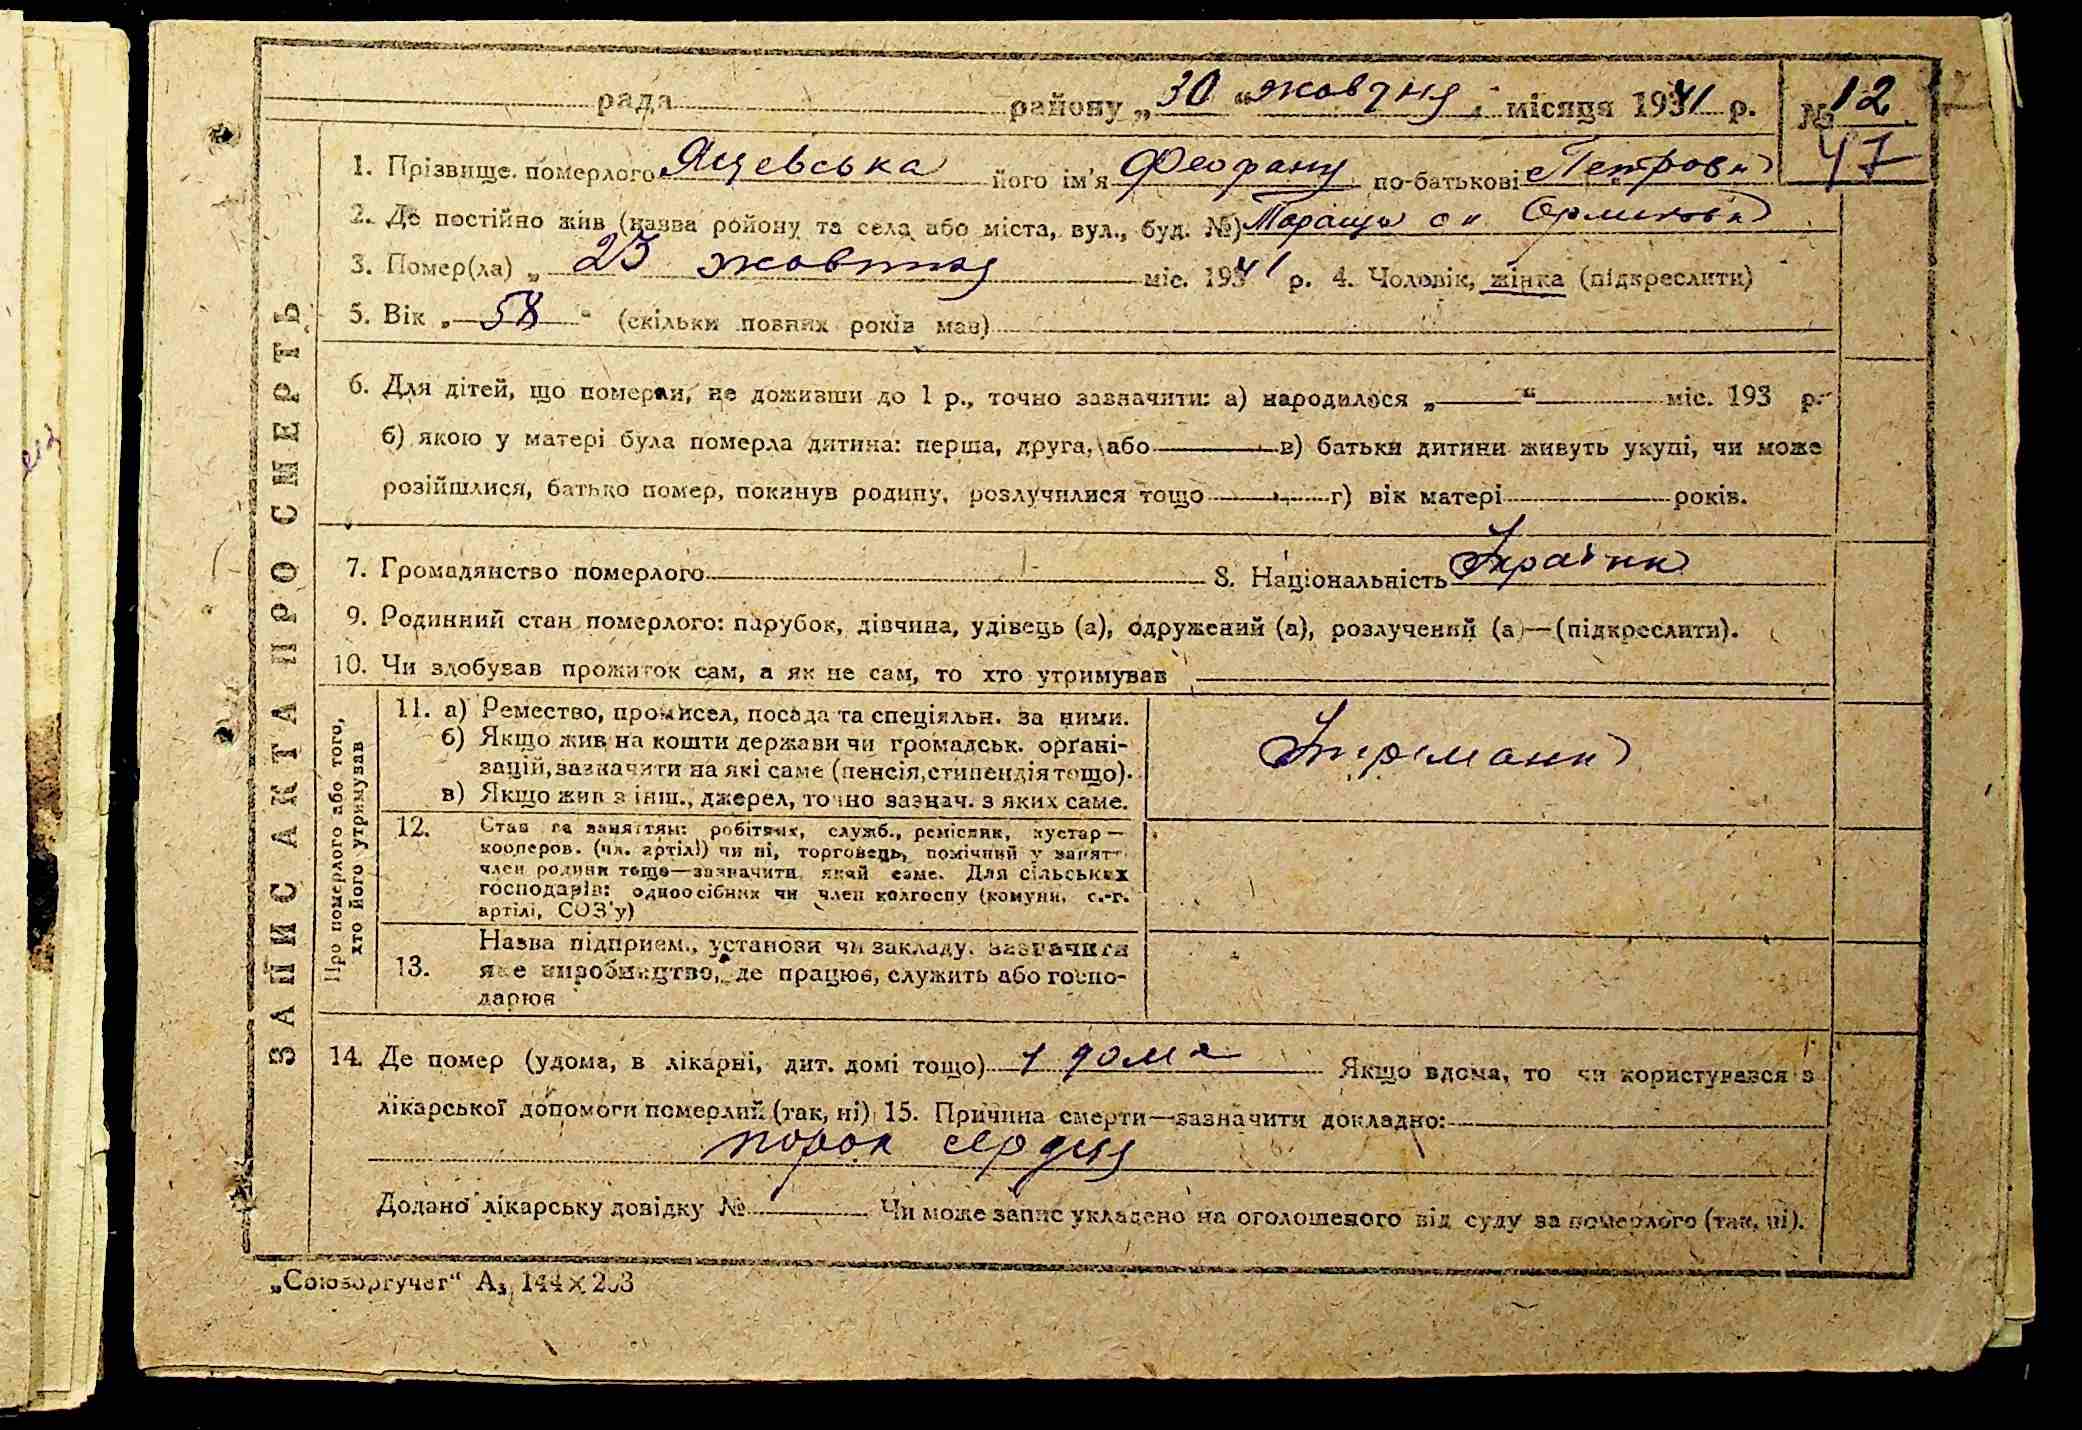 рада району „30“ жовтня місяця 1941 р. № 12
47
1. Прізвище померлого Яцевська його ім'я Феофану по-батькові Петровн
2. Де постійно жив (назва району та села або міста, вул., буд. №) Тараща
3. Помер(ла) „ 23 жовтня міс. 1941 р. 4. Чоловік, жінка (підкреслити)
5. Вік „ 58 “ (скільки повних років мав)
6. Для дітей, що померли, не доживши до 1 р., точно зазначити: а) народилося „ “ міс. 193 р.
б) якою у матері була померла дитина: перша, друга, або в) батьки дитини живуть укупі, чи може
розійшлися, батько помер, покинув родину, розлучилися тощо г) вік матері років.
7. Громадянство померлого 8. Національність Українк
9. Родинний стан померлого: парубок, дівчина, удівець (а), одружений (а), розлучений (а)—(підкреслити).
10. Чи здобував прожиток сам, а як не сам, то хто утримував
ЗАПИС АКТА ПРО СМЕРТЬ
Про померлого або того,
хто його утримував
11. а) Ремество, промисел, посада та спеціяльн. за ними.
б) Якщо жив на кошти держави чи громадськ. органі-
зацій, зазначити на які саме (пенсія, стипендія тощо).
в) Якщо жив з інш., джерел, точно зазнач. з яких саме.
Утриманн
12. Стан за заняттям: робітник, служб., ремісник, кустар—
кооперов. (чл. артілі) чи ні, торговець, помічний у занят
член родини тощо—зазначити, який саме. Для сільських
господарів: одноосібник чи член колгоспу (комуни, с.-г.
артілі, СОЗ'у)
13. Назва підприєм., установи чи закладу. зазначити
яке виробництво, де працює, служить або госпо-
дарює
14. Де помер (удома, в лікарні, дит. домі тощо) у дома Якщо вдома, то чи користувався з
лікарської допомоги померлий (так, ні) 15. Причина смерти—зазначити докладно:
порок сердця
Додано лікарську довідку № Чи може запис укладено на оголошеного від суду за померлого (так, ні).
„Союзоргучет“ А₅ 144×203